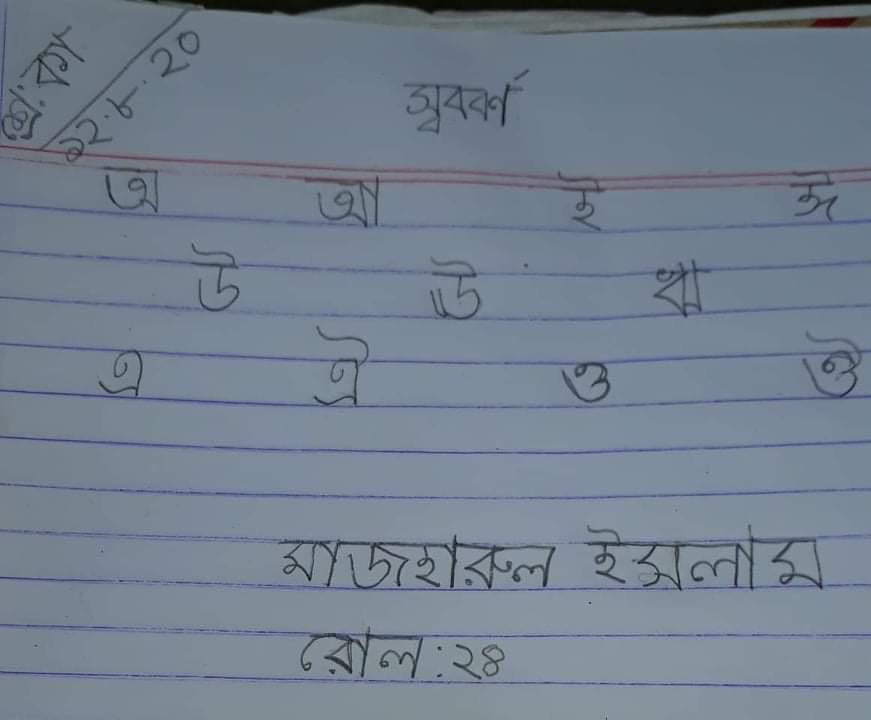 শ্রে: কা
১২.৮.২০
স্ববর্ণ
অ আ ই ঈ
উ ঊ ঋ
এ ঐ ও ঔ
মাজহারুল ইসলাম
রোল:২৪